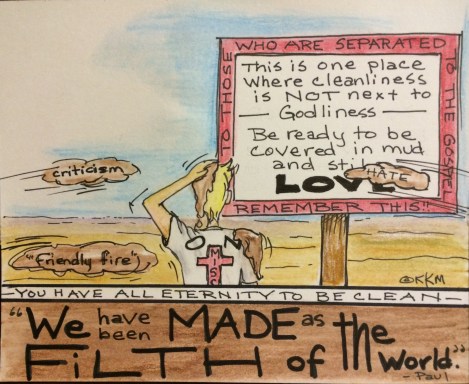 TO THOSE
WHO ARE SEPARATED
TO THE GOSPEL
REMEMBER THIS!!
This is one place
where cleanliness
is NOT next to
— Godliness —
Be ready to be
covered in mud
and sti
LOV
HATE
criticism
"friendly fire"
ON
MISS
©KKM
—YOU HAVE ALL ETERNITY TO BE CLEAN—
"We have been MADE as the
FiLTH of the World."
- Paul